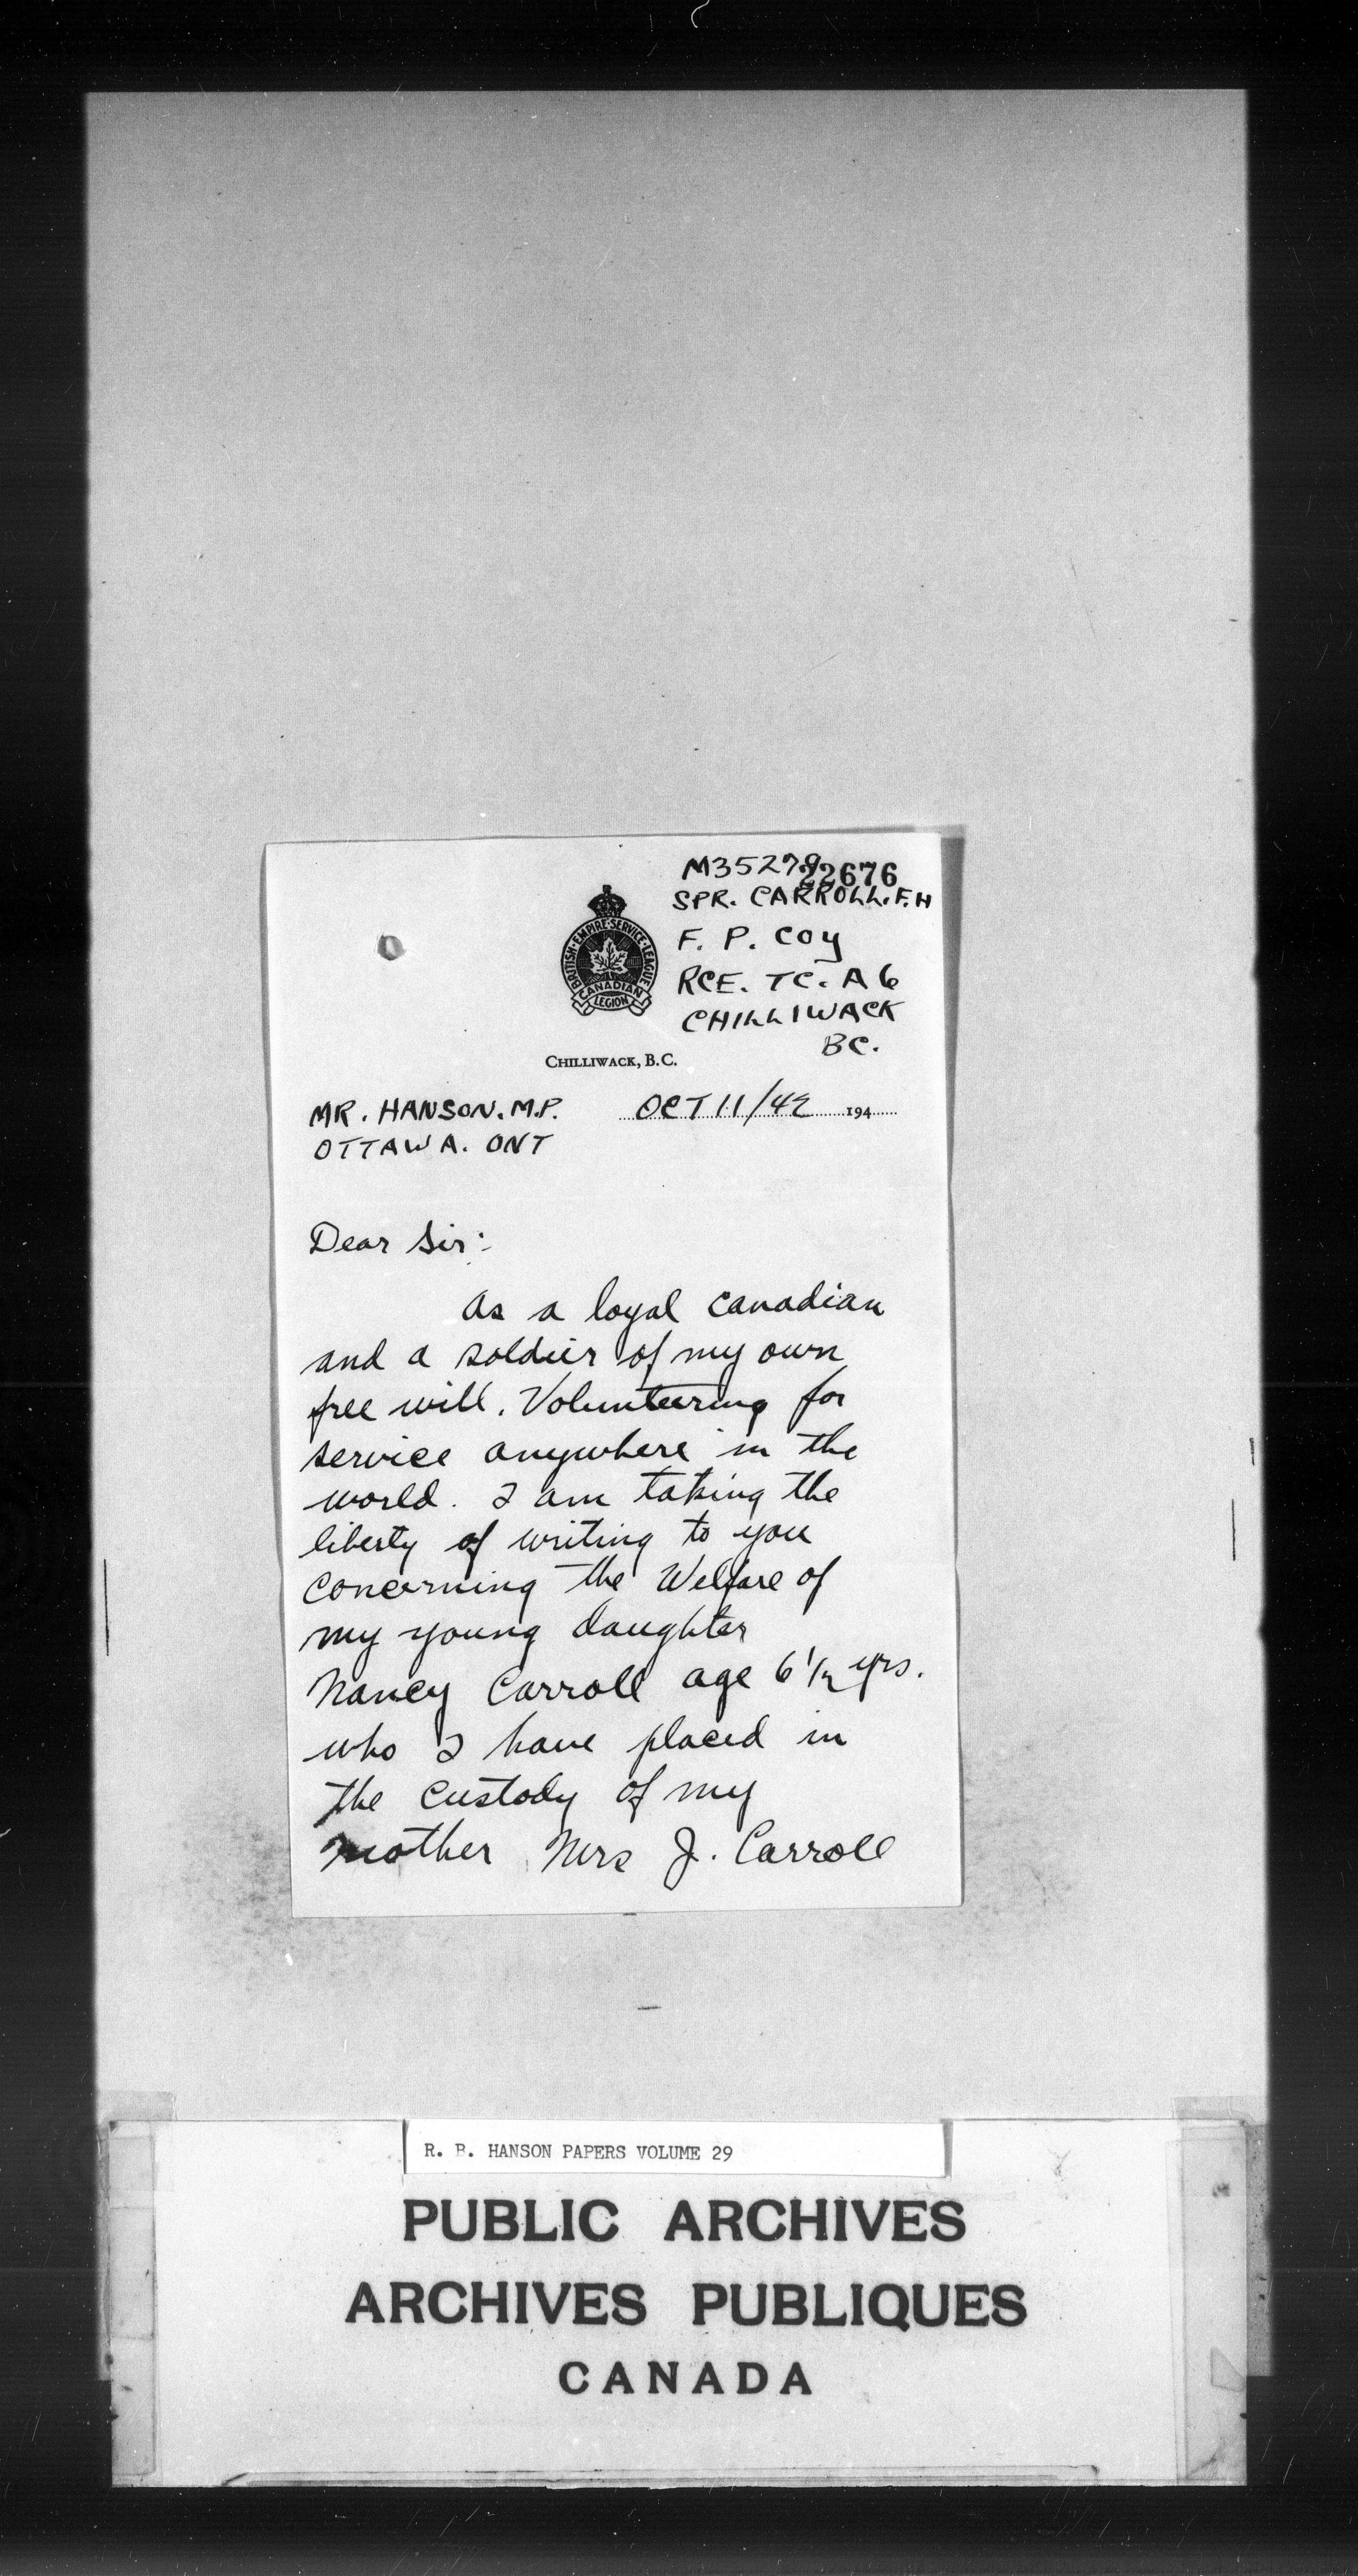 M35279
22676
SPR. CARROLL. F.H
F. P. COY
RCE. TC. A6
CHILLIWACK
BC.
BRITISH·EMPIRE·SERVICE·LEAGUE
CANADIAN
LEGION
CHILLIWACK, B.C.
MR. HANSON. M.P. OCT 11/42 194
OTTAWA. ONT
Dear Sir:
As a loyal Canadian
and a soldier of my own
free will. Volunteering for
service anywhere in the
world. I am taking the
liberty of writing to you
concerning the Welfare of
my young daughter
Nancy Carroll age 6 1/2 yrs.
who I have placed in
the custody of my
mother Mrs J. Carroll
R. B. HANSON PAPERS VOLUME 29
PUBLIC ARCHIVES
ARCHIVES PUBLIQUES
CANADA